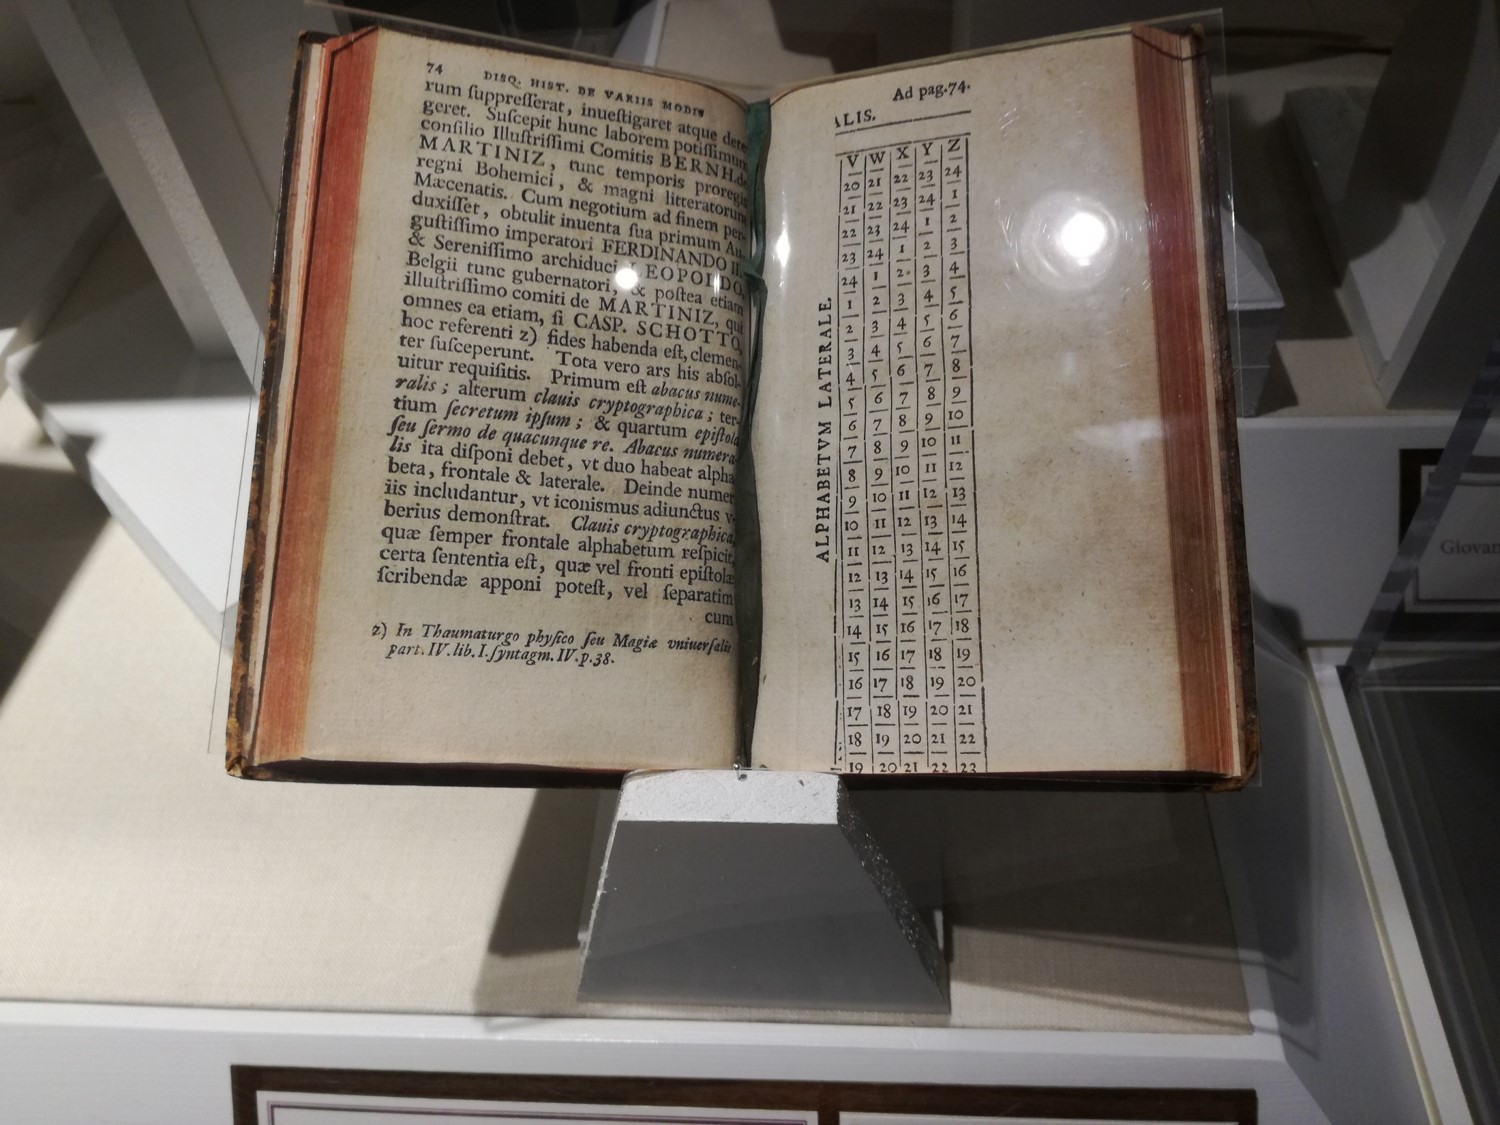 74 DISQ. HIST. DE VARIIS MODIS
rum ſuppreſſerat, inueſtigaret atque dete
geret. Suſcepit hunc laborem potiſſimum
conſilio Illuſtriſſimi Comitis BERNH. de
MARTINIZ, tunc temporis proregis
regni Bohemici, & magni litteratorum
Mæcenatis. Cum negotium ad finem per-
duxiſſet, obtulit inuenta ſua primum Au
guſtiſſimo imperatori FERDINANDO III.
& Sereniſſimo archiduci LEOPOLDO,
Belgii tunc gubernatori, & poſtea etiam
illuſtriſſimo comiti de MARTINIZ, qui
omnes ea etiam, ſi CASP. SCHOTTO,
hoc referenti z) fides habenda eſt, clemen-
ter ſuſceperunt. Tota vero ars his abſol-
uitur requiſitis. Primum eſt abacus nume-
ralis; alterum clauis cryptographica; ter-
tium ſecretum ipſum; & quartum epiſtola
ſeu ſermo de quacunque re. Abacus numera-
lis ita diſponi debet, vt duo habeat alpha
beta, frontale & laterale. Deinde numer
iis includantur, vt iconismus adiunctus v-
berius demonſtrat. Clauis cryptographica,
quæ ſemper frontale alphabetum reſpicit,
certa ſententia eſt, quæ vel fronti epiſtolæ
ſcribendæ apponi poteſt, vel ſeparatim
cum
z) In Thaumaturgo phyſico ſeu Magiæ vniuerſalis
part. IV. lib. I. ſyntagm. IV. p. 38.
Ad pag. 74.
ALIS.
ALPHABETVM LATERALE.
V W X Y Z
20 21 22 23 24
21 22 23 24 1
22 23 24 1 2
23 24 1 2 3
24 1 2 3 4
1 2 3 4 5
2 3 4 5 6
3 4 5 6 7
4 5 6 7 8
5 6 7 8 9
6 7 8 9 10
7 8 9 10 11
8 9 10 11 12
9 10 11 12 13
10 11 12 13 14
11 12 13 14 15
12 13 14 15 16
13 14 15 16 17
14 15 16 17 18
15 16 17 18 19
16 17 18 19 20
17 18 19 20 21
18 19 20 21 22
19 20 21 22 23
Giovan